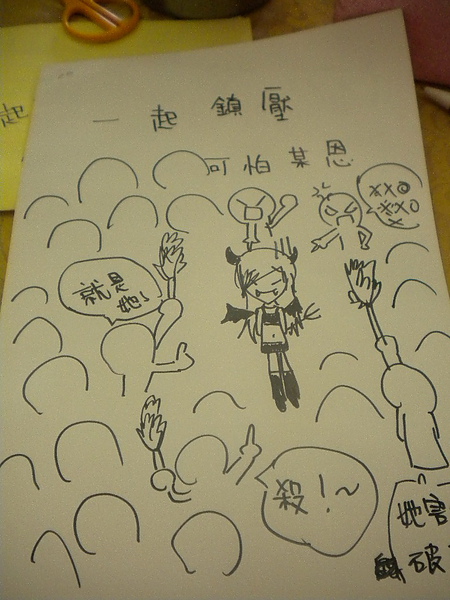 一起鎮壓
可怕某恩
××◎
××○
×
就是
她!
殺!~
她害
破
起